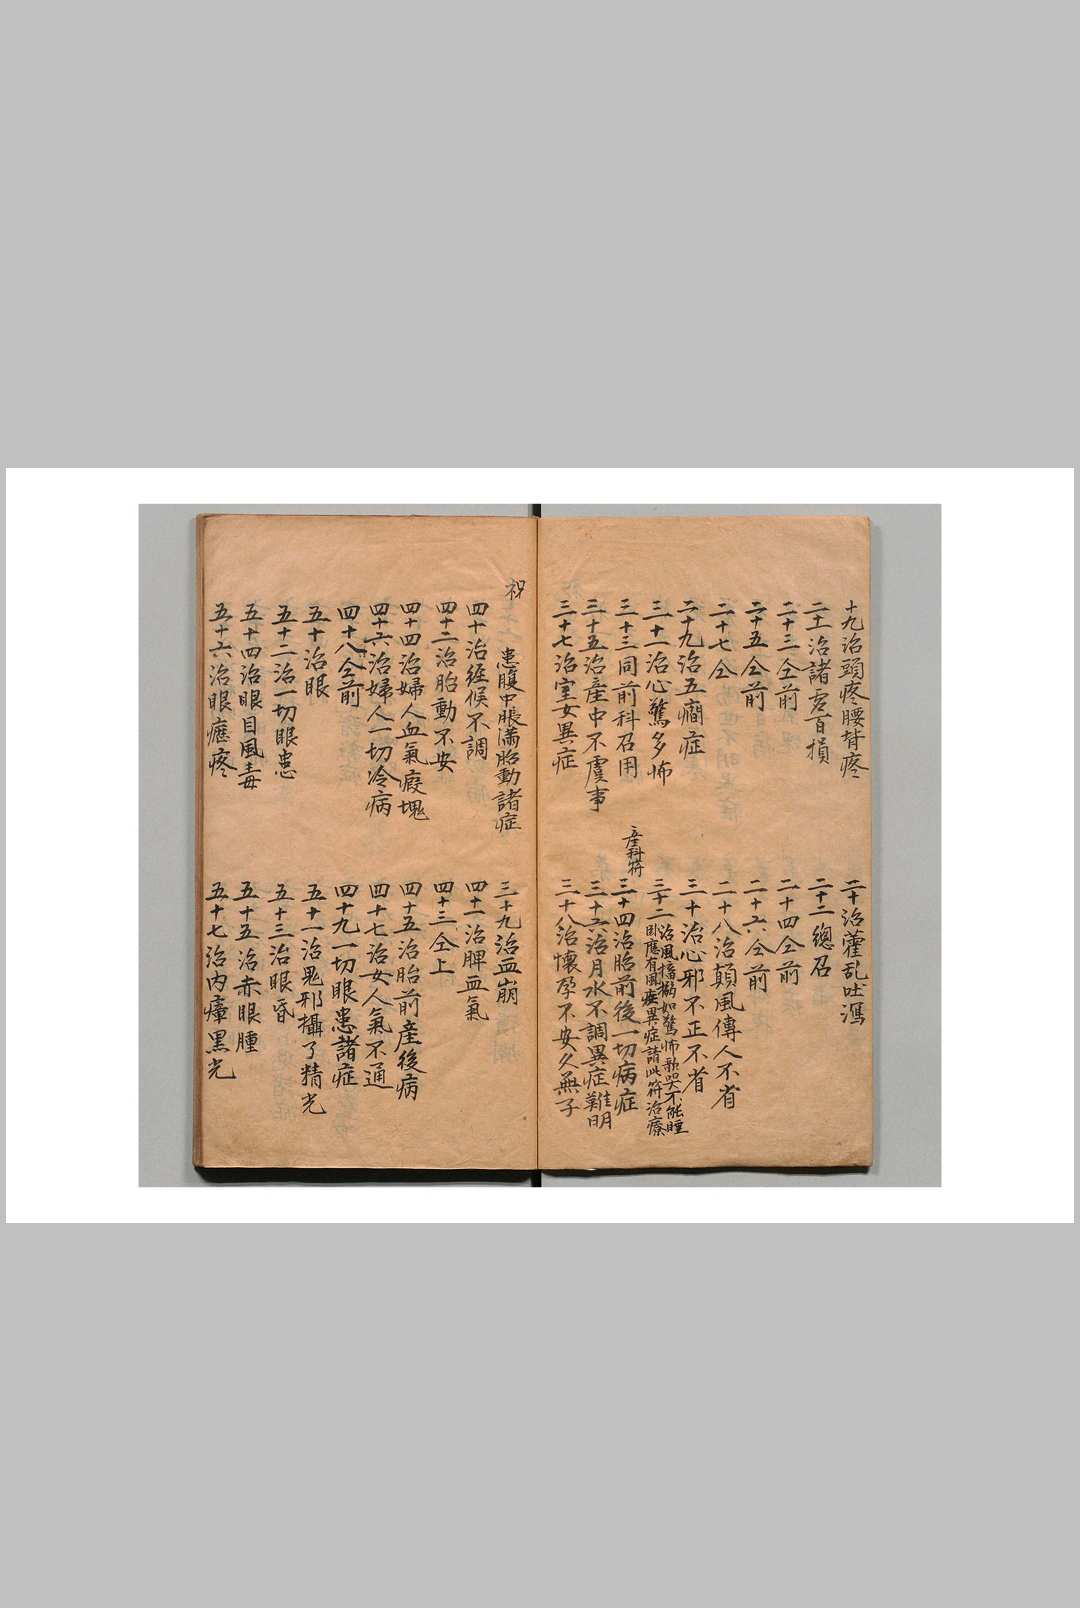 十九治頭疼腰背疼
二十治藿乱吐瀉
二十一治諸虚百損
二十二總召
二十三仝前
二十四仝前
二十五仝前
二十六仝前
二十七仝
二十八治顛風傳人不省
二十九治五癎症
三十治心邪不正不省
三十一治心驚多怖
三十二治風搐搦如驚怖歌哭不能睡
卧應有風疾異症請此符治療
三十三同前科召用
產科符
三十四治胎前後一切病症
三十五治產中不虞事
三十六治月水不調異症難明
三十七治室女異症
三十八治懷孕不安久無子
祝
患腹中脹滿胎動諸症
三十九治血崩
四十治經候不調
四十一治脾血氣
四十二治胎動不安
四十三仝上
四十四治婦人血氣瘕塊
四十五治胎前產後病
四十六治婦人一切冷病
四十七治女人氣不通
四十八仝前
四十九一切眼患諸症
五十治眼
五十一治鬼邪攝了精光
五十二治一切眼患
五十三治眼昏
五十四治眼目風毒
五十五治赤眼腫
五十六治眼癮疼
五十七治内瘴黑光